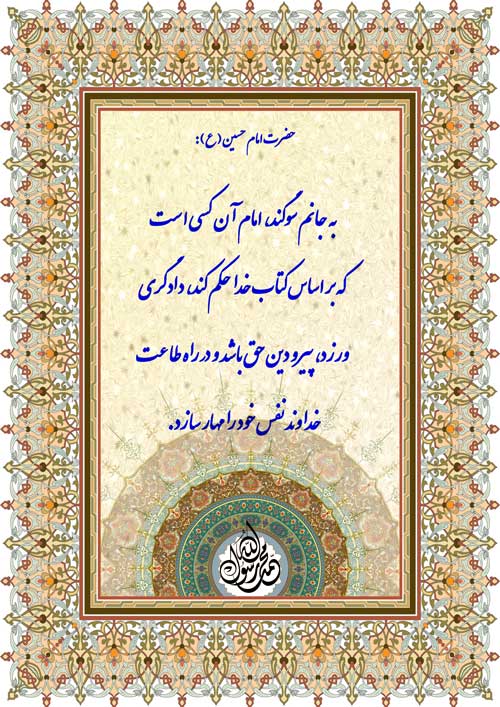 حضرت امام حسین (ع):
به جانم سوگند، امام آن کسی است
که بر اساس کتاب خدا حکم کند، دادگری
ورزد، پیرو دین حق باشد و در راه طاعت
خداوند نفس خود را مهار سازد.
محمد رسول الله